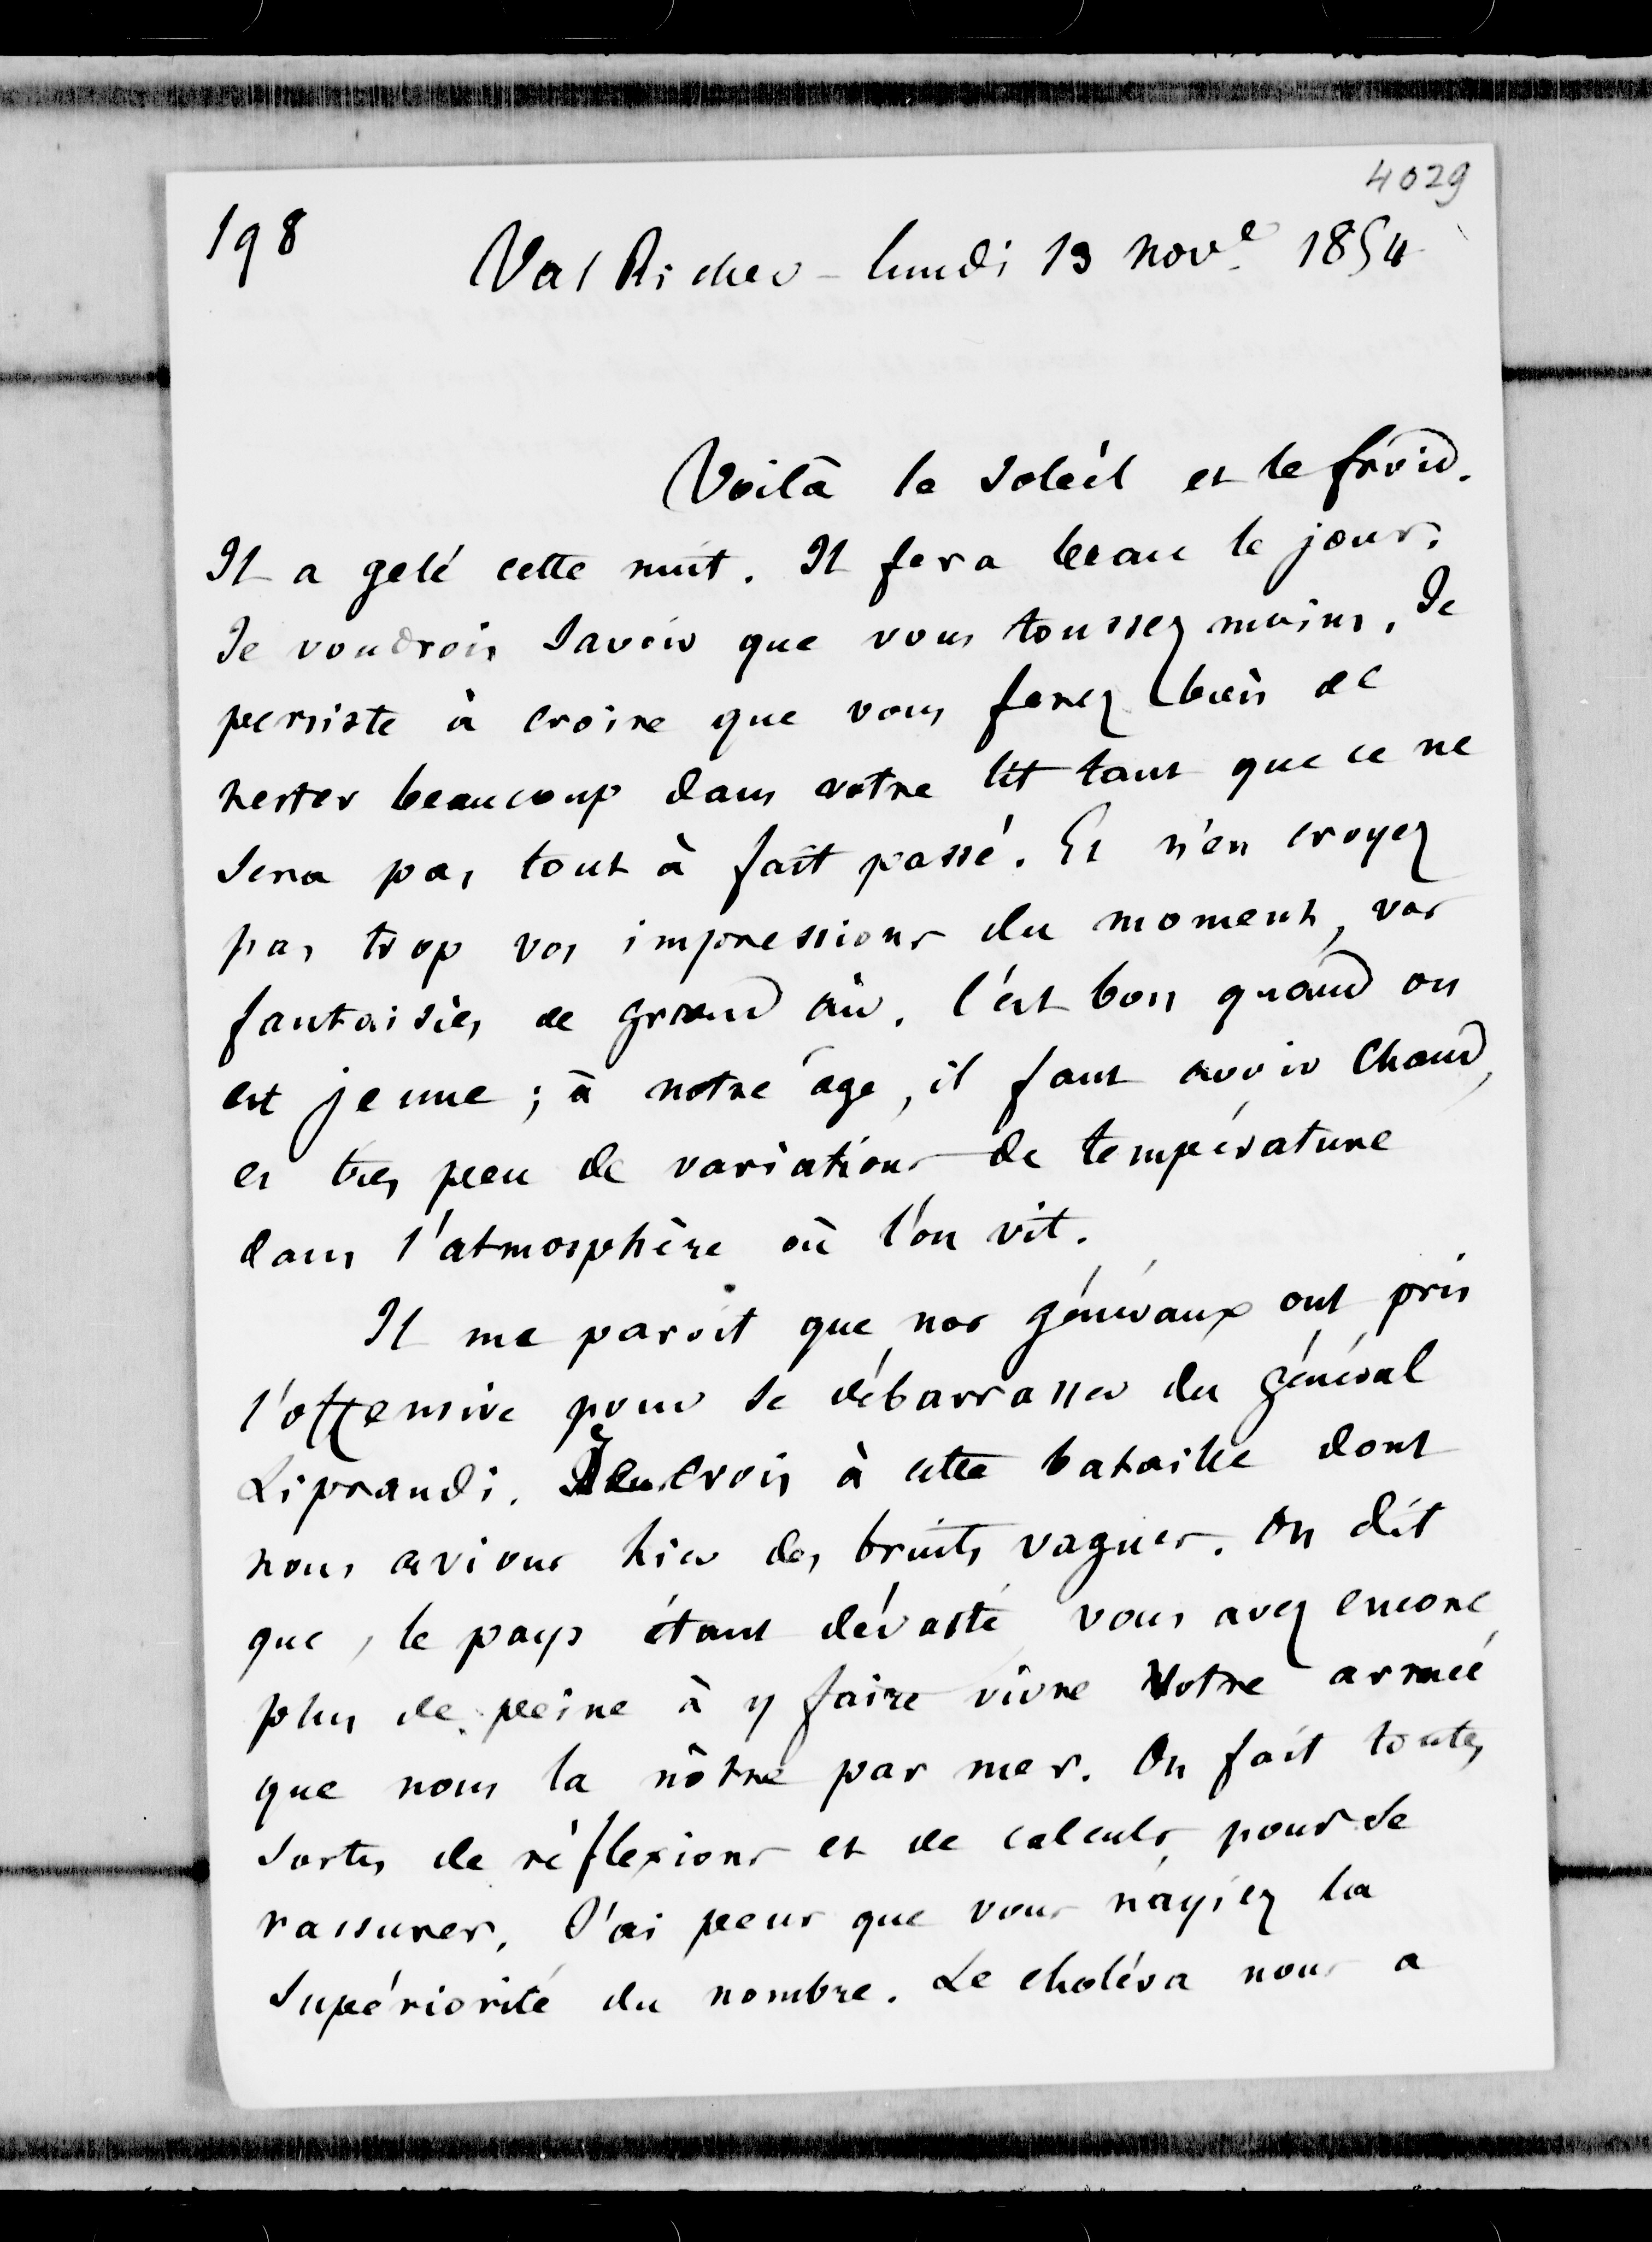 4029
198
Val Richer - lundi 13 nov.e 1854
Voilà le soleil et le froid.
Il a gelé cette nuit. Il fera beau le jour.
Je voudrois savoir que vous toussez moins. Je
persiste à croire que vous ferez bien de
rester beaucoup dans votre lit tant que ce ne
sera pas tout à fait passé. Et n'en croyez
pas trop vos impressions du moment, vos
fantaisies de grand air. C'est bon quand on
est jeune ; à notre âge, il faut avoir chaud,
et très peu de variations de température
dans l'atmosphère où l'on vit.
Il me paroit que nos généraux ont pris
l'offensive pour se débarrasser du général
Liprandi. Je crois à cette bataille dont
nous avions hier des bruits vagues. On dit
que, le pays étant dévasté vous avez encore
plus de peine à y faire vivre votre armée
que nous la nôtre par mer. On fait toutes
sortes de réflexions et de calculs pour se
rassurer. J'ai peur que vous n'ayiez la
supériorité du nombre. Le choléra nous a